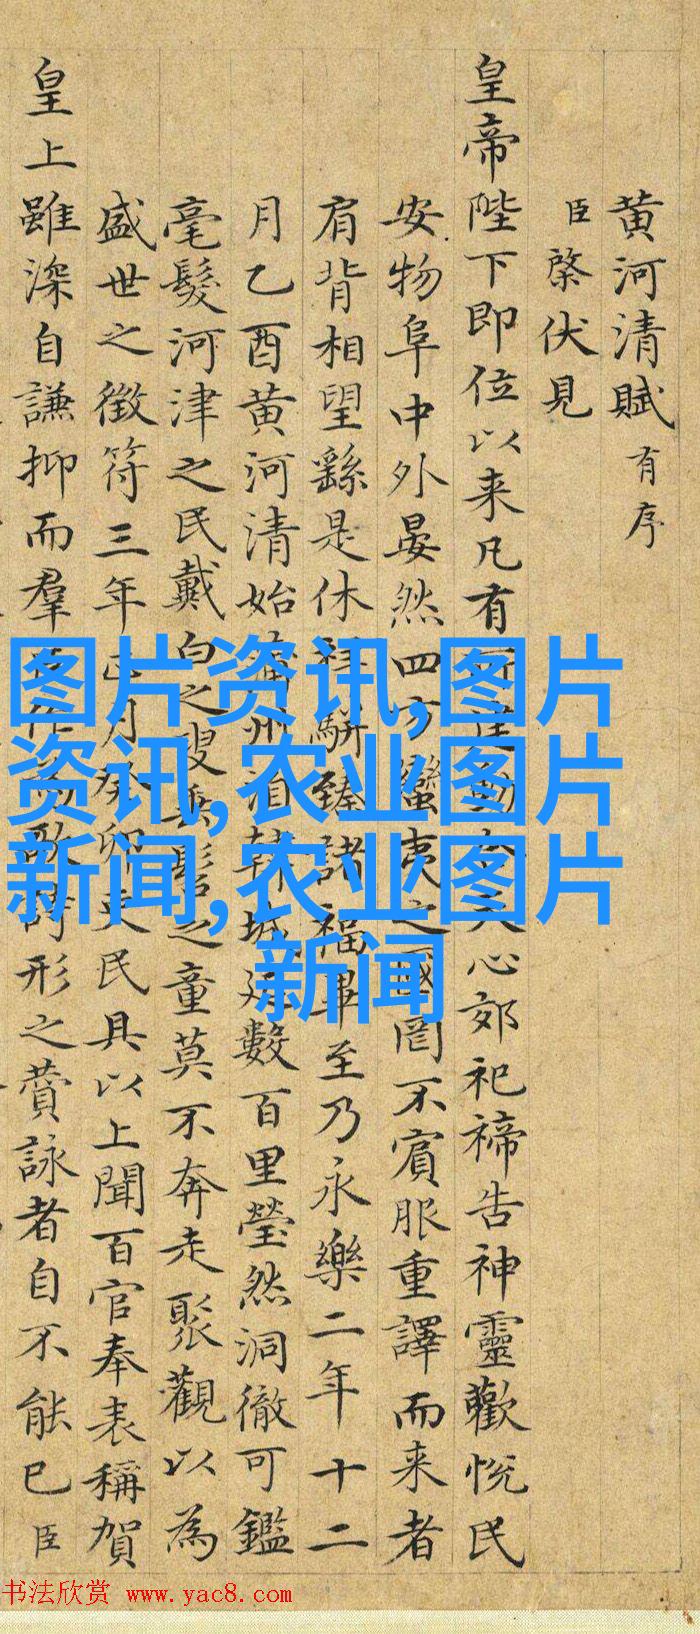 黄河清賦 有序
臣棨伏見
皇帝陛下即位以来凡有 心郊祀禘告神靈歡悦民
安物阜中外晏然四方蠻夷之國罔不賓服重譯而来者
肩背相望繇是休 駢臻諸福畢至乃永樂二年十二
月乙酉黄河清始蒲州 韓城 數百里瑩然洞徹可鑑
毫髮河津之民戴白之叟垂髫之童莫不奔走聚觀以為
盛世之徵符三年正月癸卯 民具以上聞百官奉表稱賀
皇上雖深自謙抑而羣 歌詩形之賛詠者自不能已臣
图片资讯,图片
资讯,农业图片
新闻,农业图片
新闻
书法欣赏 www.yac8.com